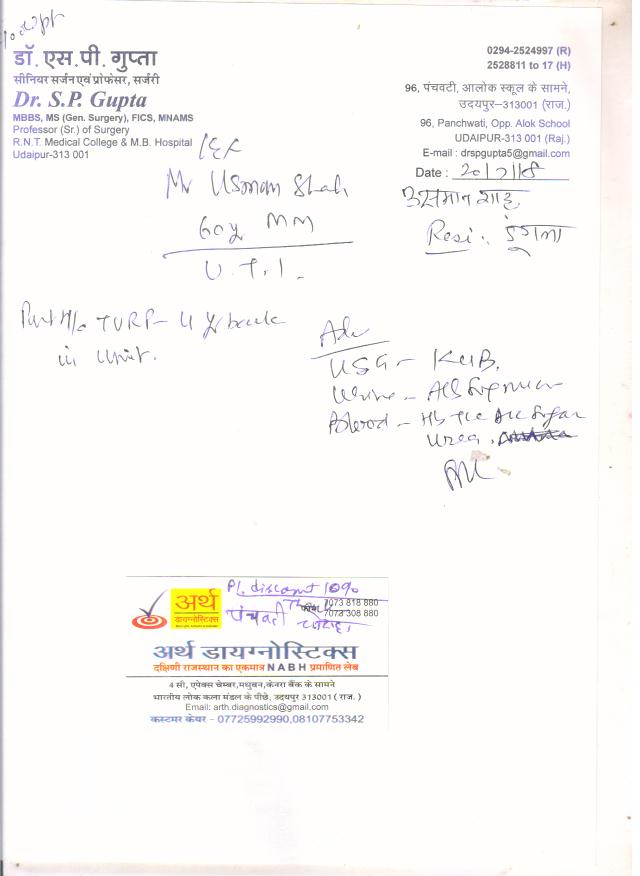 डॉ. एस.पी. गुप्ता
सीनियर सर्जन एवं प्रोफेसर, सर्जरी
Dr. S.P. Gupta
MBBS, MS (Gen. Surgery), FICS, MNAMS
Professor (Sr.) of Surgery
R.N.T. Medical College & M.B. Hospital
Udaipur-313 001
0294-2524997 (R)
2528811 to 17 (H)
96, पंचवटी, आलोक स्कूल के सामने,
उदयपुर–313001 (राज.)
96, Panchwati, Opp. Alok School
UDAIPUR-313 001 (Raj.)
E-mail : drspgupta5@gmail.com
Date : 20/7/18
Mr Usman Shah
उसमान शाह
60y
Resi. डुंगला
U.T.I.
Past H/o TURP- 4 yr back
in Unit.
Adv
USG - KUB.
Urine -
Blood - Hb TLC DLC Sugar
Urea,
Pl. discount 10%
अर्थ
डायग्नोस्टिक्स
7073 818 880
7073 308 880
पंचवटी
अर्थ डायग्नोस्टिक्स
दक्षिणी राजस्थान का एकमात्र NABH प्रमाणित लेब
4 सी, एपेक्स चेम्बर, मधुबन, केनरा बैंक के सामने
भारतीय लोक कला मंडल के पीछे, उदयपुर 313001 ( राज. )
Email: arth.diagnostics@gmail.com
कस्टमर केयर - 07725992990,08107753342